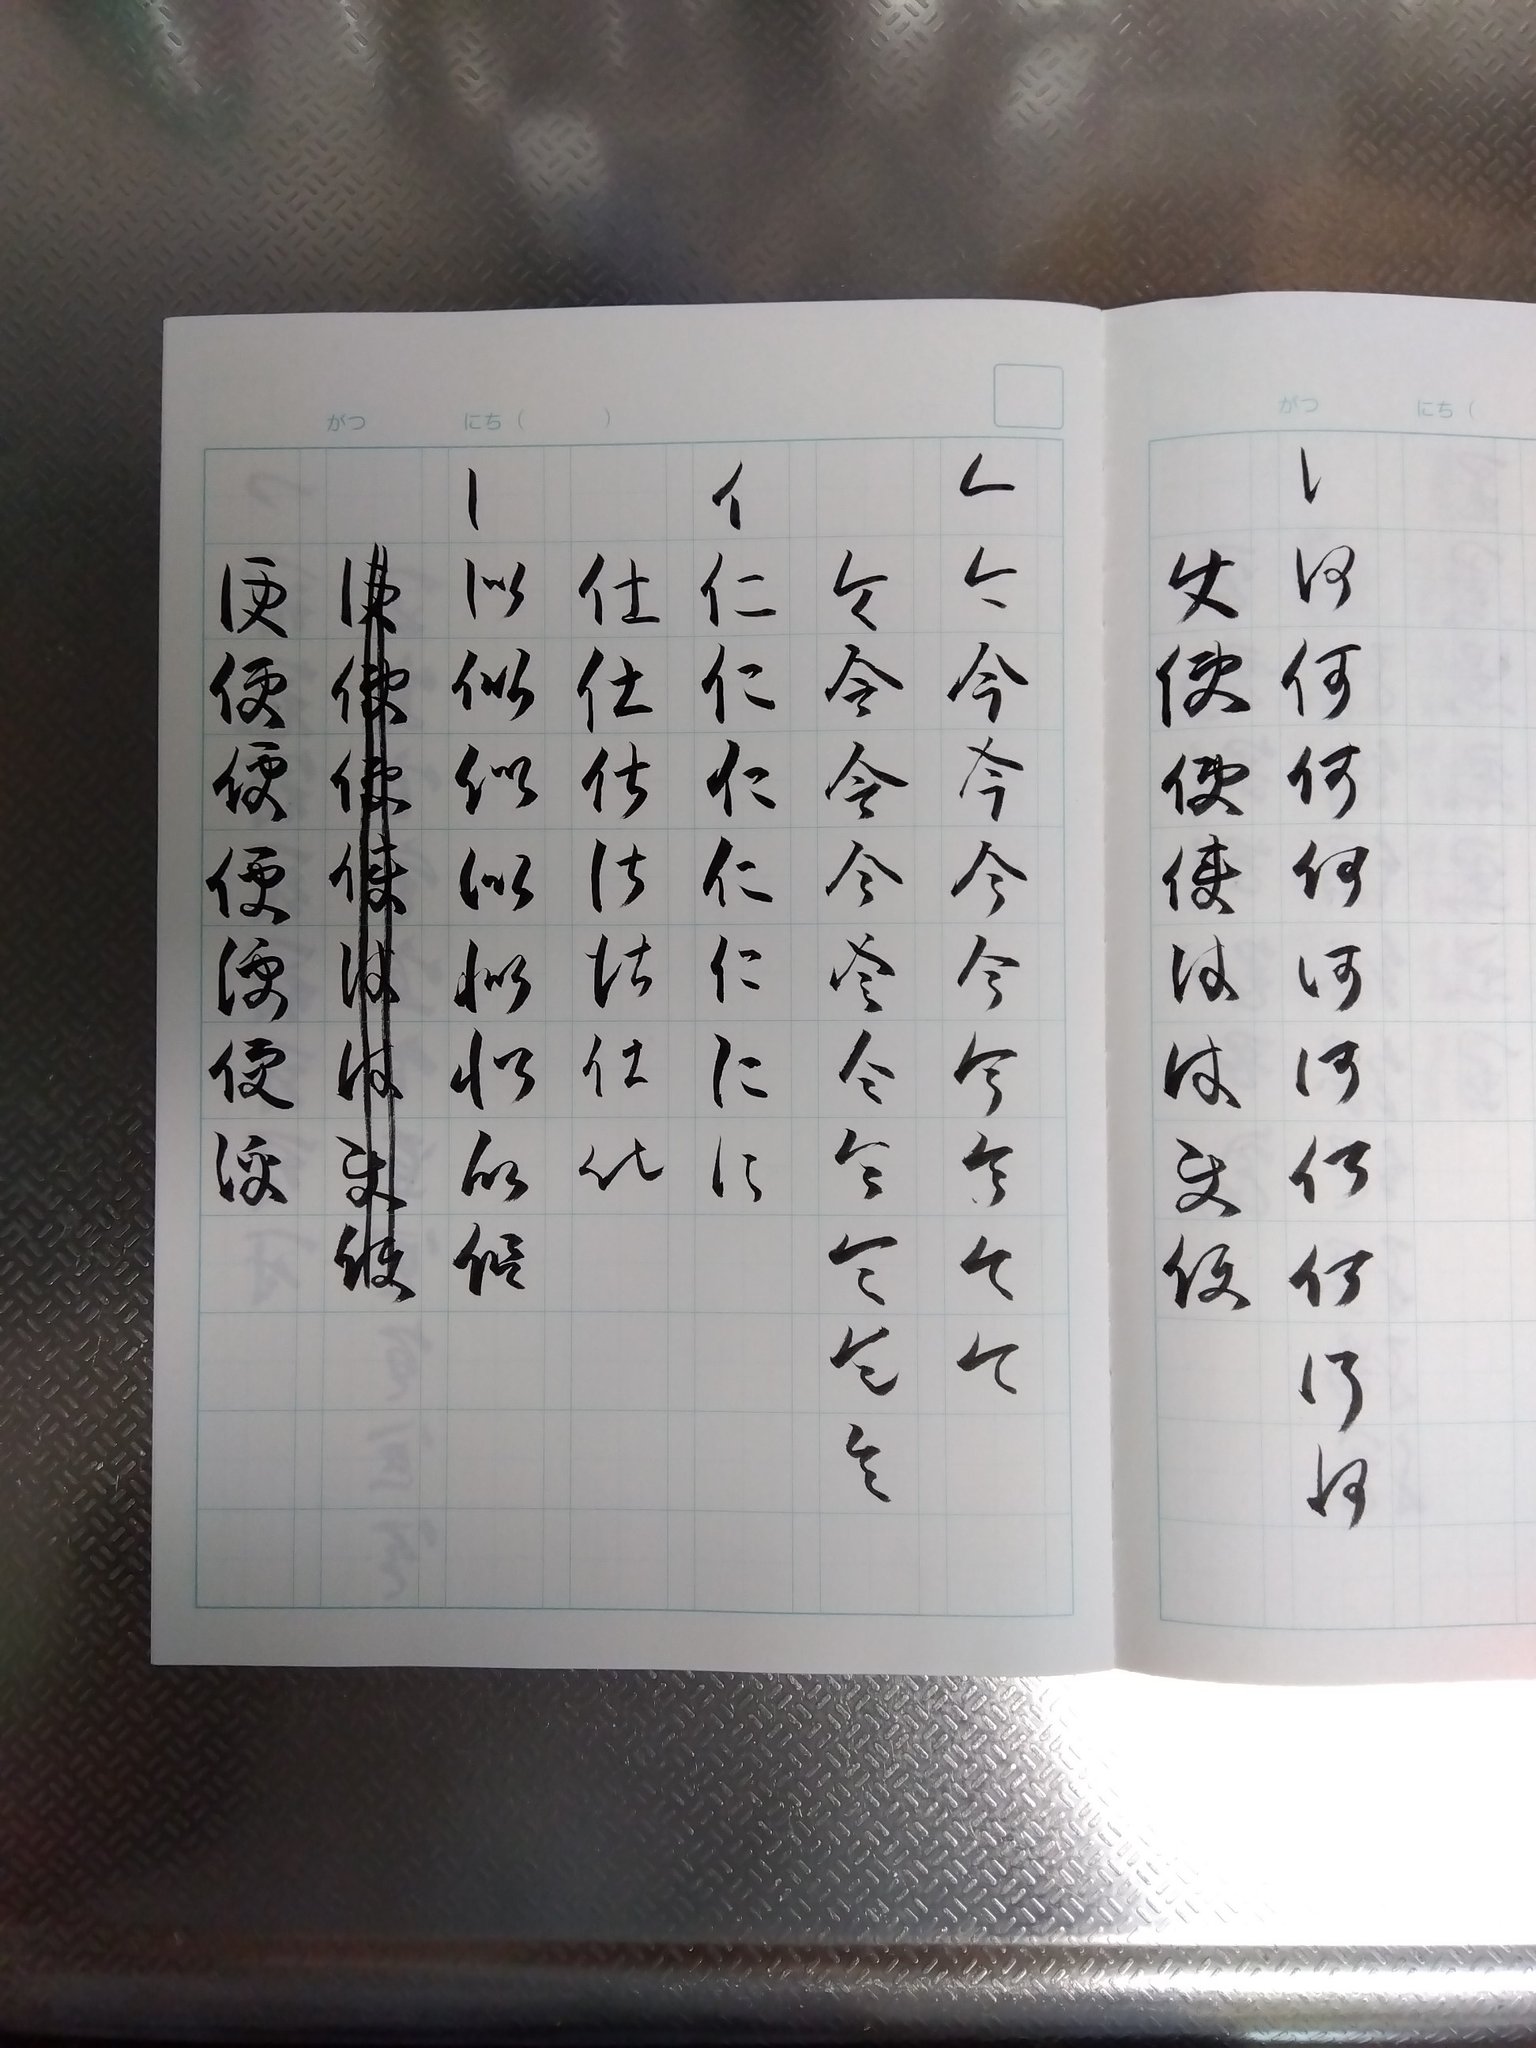 がつ にち(
何何何何何何何何何何
使使使使使使使使
がつ にち( )
今今今今今今今今今
令令令令令令令令令令
仁仁仁仁仁仁仁
仕仕仕仕仕仕仕
似似似似似似似似
使使使使使使使使
便便便便便便便